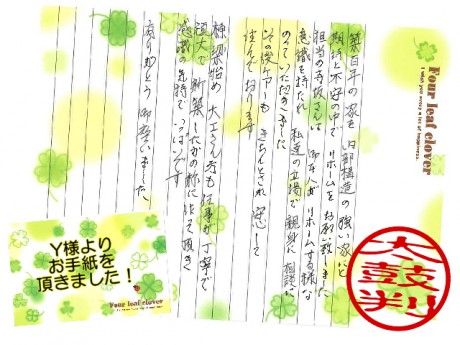 築百年の家を内部構造の強い家にと
期待と不安の中で リホームをお願い致しました
担当の
さんは 御本人が リホームする様な
意識を持たれ 私達の立場で親身に相談に
のっていただきました
その後ケアーもきちんとされ 安心して
住んでおります
棟梁始め 大工さん方も仕事が丁寧で
頑丈で 新築したかの様に作って頂き
感謝の気持で いっぱいです
有りがとう 御座いました。
Four leaf clover
I wish you every a lot of happiness.
Y様より
お手紙を
頂きました!
Four leaf clover
太鼓判